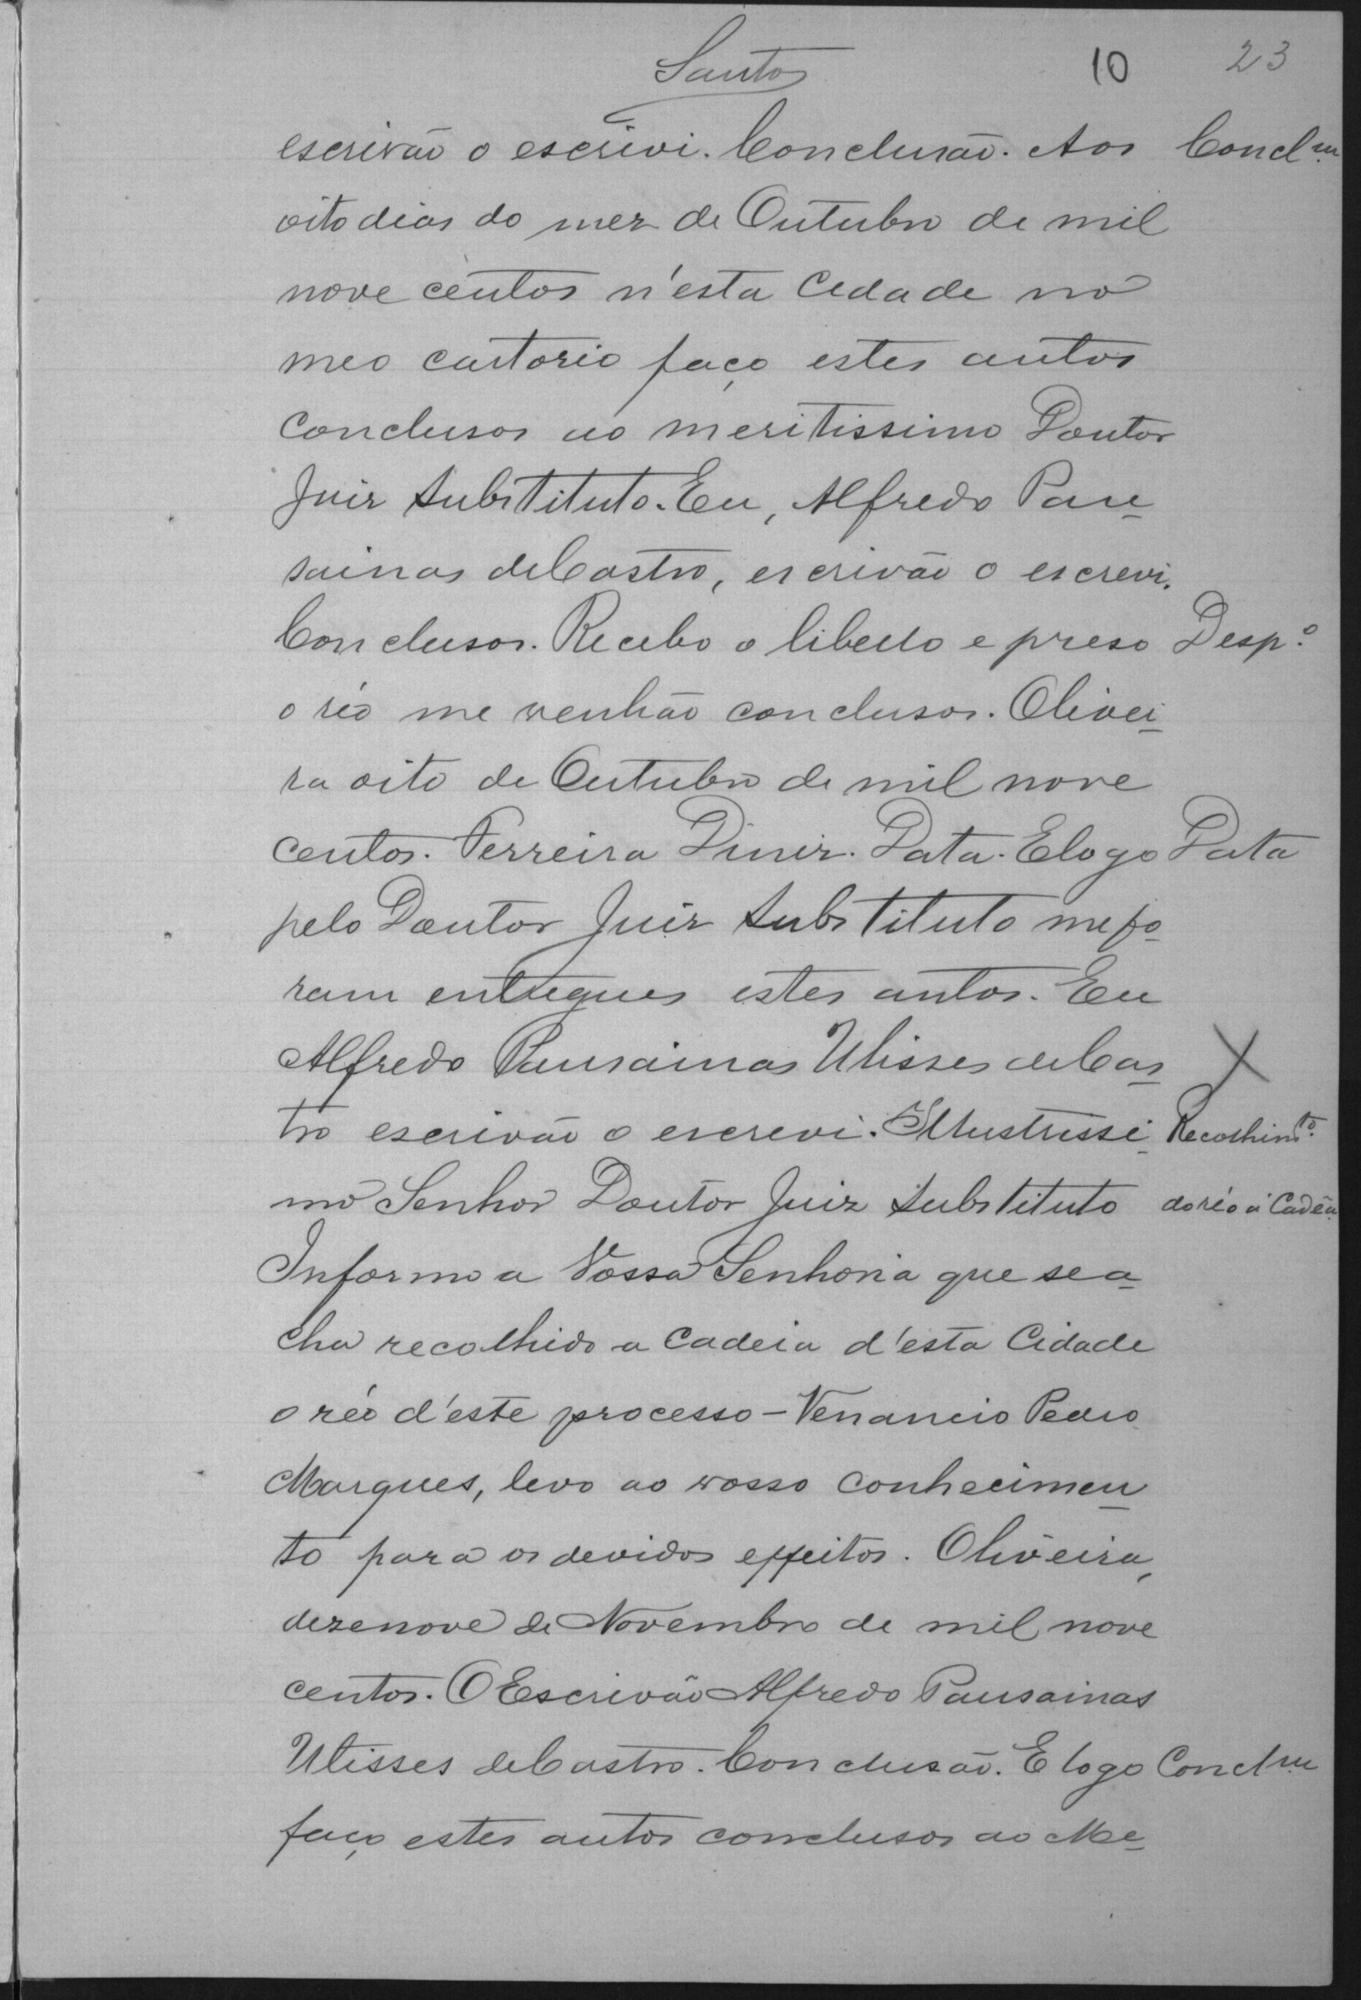 Santos 10 23
escrivão o escrivi. Conclusão. Aos Conclm
oito dias do mez de Outubro de mil
nove centos n'esta Cidade no
meo cartorio faço estes autos
conclusos ao meritissimo Doutor
Juiz Substituto. Eu, Alfredo Pau-
sainas de Castro, escrivão o escrevi.
Conclusos. Recebo o libello e preso Despº
o réo me venhão conclusos. Olivei-
ra oito de Outubro de mil nove
centos. Ferreira Diniz. Data. E logo Data
pelo Doutor Juiz Substituto me fo-
ram entregues estes autos. Eu
Alfredo Pausainas Ulisses de Cas- X
tro escrivão o escrevi. Illustrissi- Recolhimto
mo Senhor Doutor Juiz Substituto do réo á Cadêa
Informo a Vossa Senhoria que se a-
cha recolhido a cadeia d'esta Cidade
o réo d'este processo - Venancio Pedro
Marques, levo ao vosso conhecimen-
to para os devidos effeitos. Oliveira,
dezenove de Novembro de mil nove
centos. O Escrivão Alfredo Pausainas
Ulisses de Castro. Conclusão. E logo Conclm
faço estes autos conclusos ao Me-